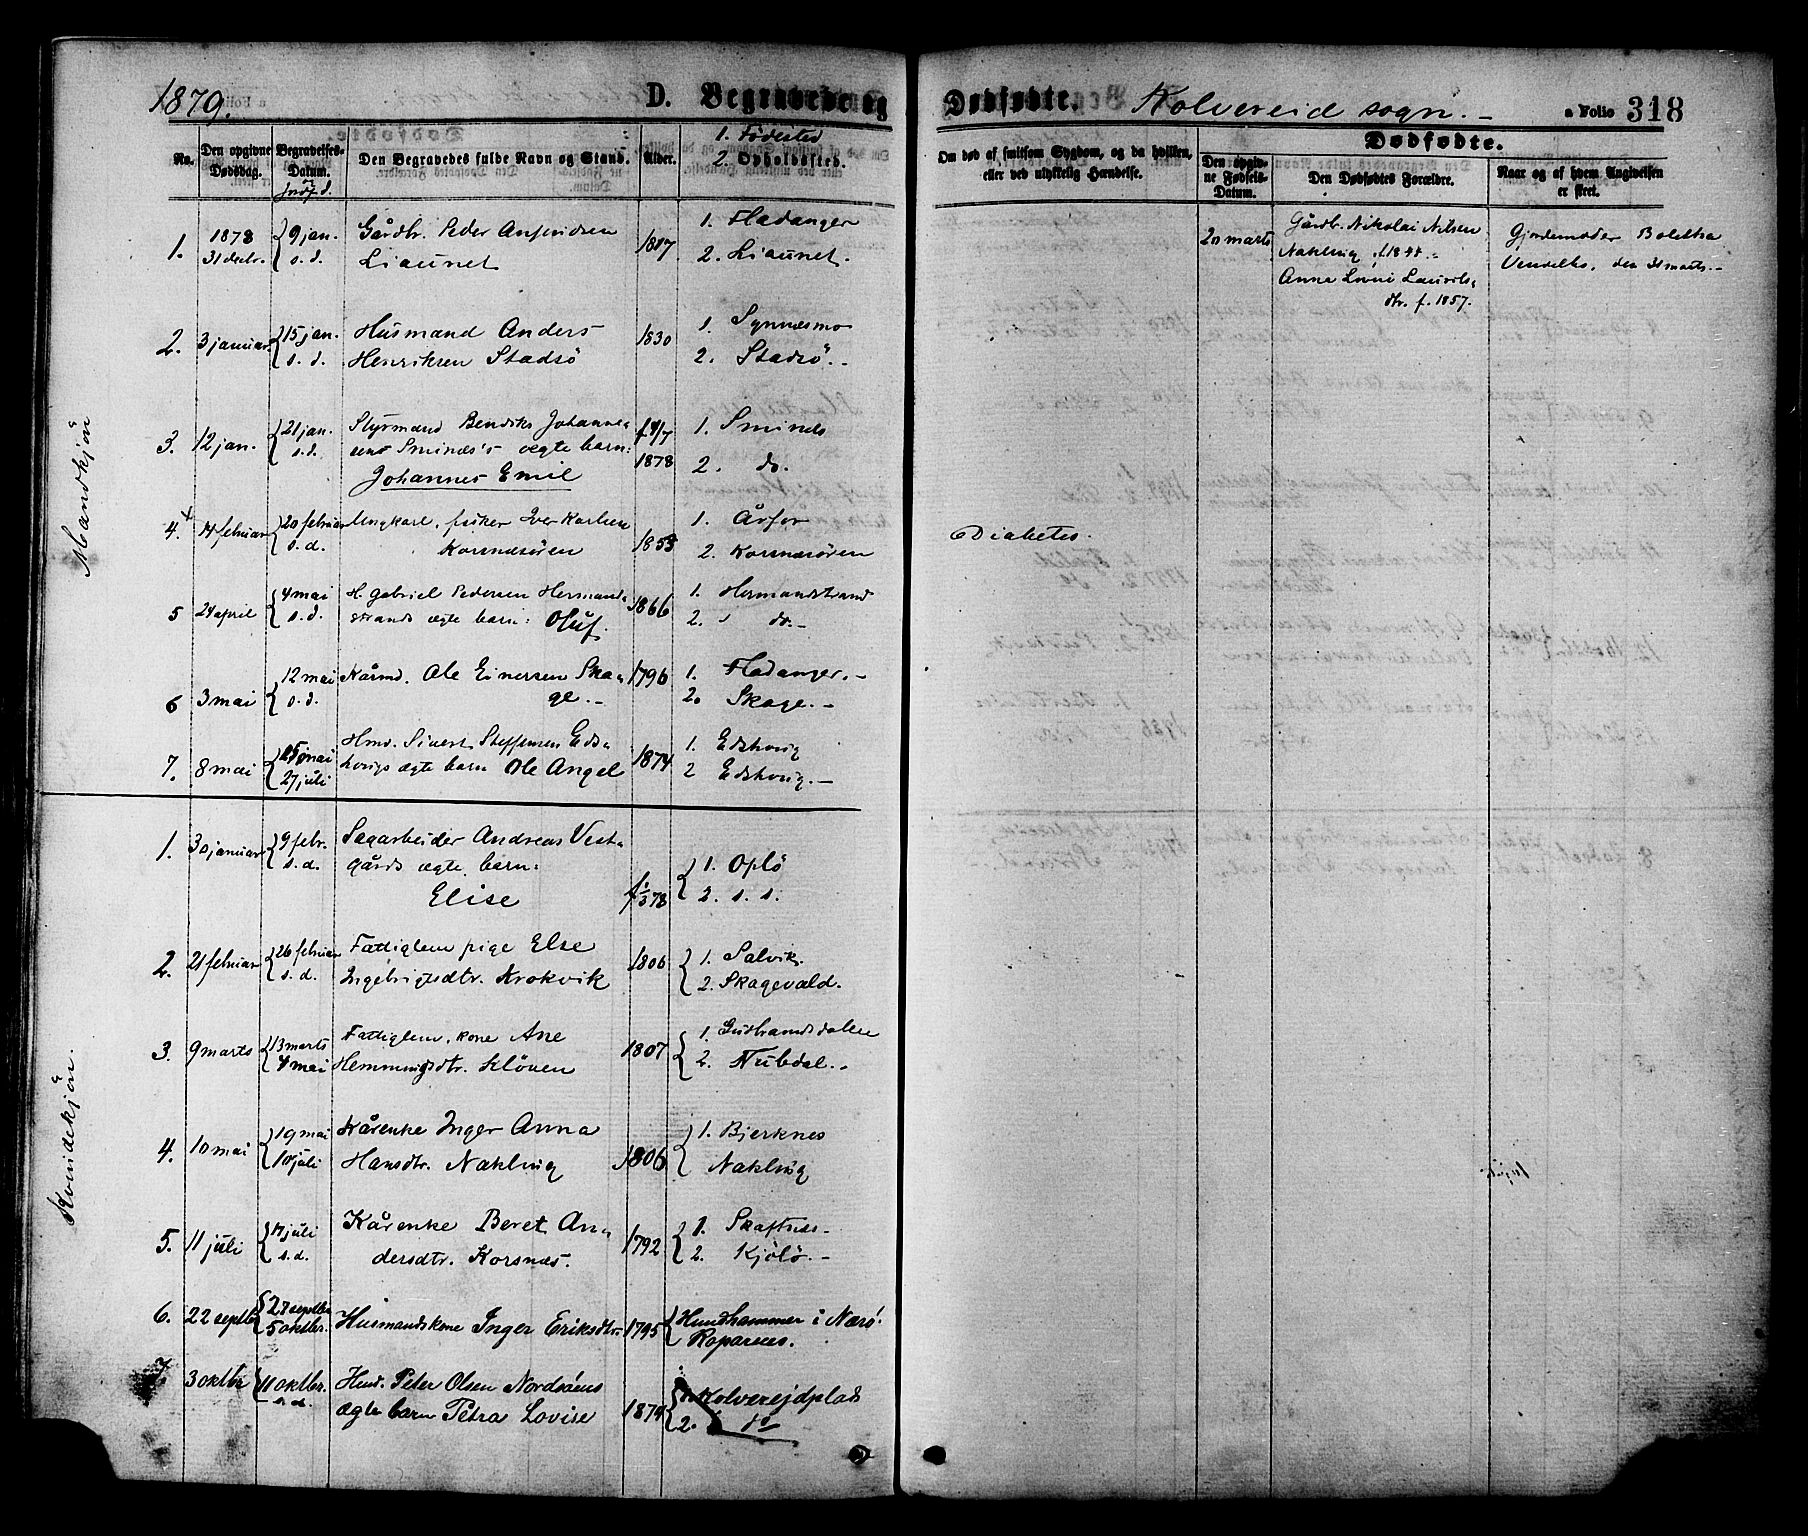 1879.
D. Begravede og Dødfødte.
Kolvereid sogn.-
a Folio 318
No.
Den opgivne Dødsdag.
Begravelses-Datum.
jordf. d.
Den Begravedes fulde Navn og Stand.
Alder.
1. Fødested
2. Opholdssted.
Om død af smitsom Sygdom, og da hvilken,
eller ved ulykkelig Hændelse.
Dødfødte.
Den opgivne Fødsels-Datum.
Den Dødfødtes Forældre.
Naar og af hvem Angivelsen er skeet.
Mandkjön
1. 1878 31 decbr. 9 jan. s. d. Gårdbr. Peder Anfindsen 1807 1. Fladanger
Liaunet 2. Liaunet.
20 marts Gårdb. Nikolai Nilsen
Nakling f. 18
Anna Lovise Laurits-
dtr. f. 1857.
Gjordemoder Bolettha
den 31 marts.-
2. 3 januar 15 jan. s. d. Husmand Anders 1830 1. Synnesmo
Henriksen Stadsö 2. Stadsö.-
3. 12 jan. 21 jan. s. d. Styrmand Bendiks Johanne-
sens Sminæs's ægte barn: f. 4/7 1878 1. Sminæs
Johannes Emil 2. do.
4. 14 februar 20 februar s. d. Ungkarl, fisker Iver Karlsen 1853 1. Årfor
Korsnæsören 2. Korsnæsören
Diabetes.
5 24 april 4 mai s. d. H. Gabriel Pedersen Hermand- 1866 1. Hermandstrand
strands ægte barn: Oluf. 2. do.-
6 3 mai 12 mai s. d. Kårmd. Ole Einersen Ska- 1796 1. Fladanger.-
ge.- 2. Skage.-
7. 8 mai 25 mai 27 juli Hmd. Sivert Steffensen Eds- 1874 1. Edshoug
hougs ægte barn Ole Angel 2 Edshoug.-
Kvindekjön.
1. 30 januar 9 febr. s. d. Sagarbeider Andreas Vest-
gårds ægte barn: 1. Oplö
Elise f. 1/3 78 2. s. s.
2. 21 februar 26 februar s. d. Fattiglem pige Else 1806 1. Salvik
Ingebrigtsdtr. Krokvik 2. Skagevald.
3. 9 marts 13 marts 4 mai Fattiglem, kone Ane 1807 1. Gudbrandsdalen
Hemmingsdtr. Klöven 2. Nubdal.-
4. 10 mai 19 mai 10 juli Kårenke Inger Anna 1806 1. Bjerknes
Hansdtr. Nakling Nakling
5. 11 juli 17 juli s. d. Kårenke Beret An- 1792 1. Skaftnes-
dersdtr. Korsnæs. 2. Kjölö.-
6. 22 septbr 28 septbr 5 oktbr. Husmandskone Inger Eriksdtr. 1795 Hundhammer i Nærö.
Roparnes.
7 3 oktbr 11 oktbr. s. d. Hmd. Peter Olsen Nordsöens 1. Kolverejdplads
ægte barn Petra Lovise 1874 2. do